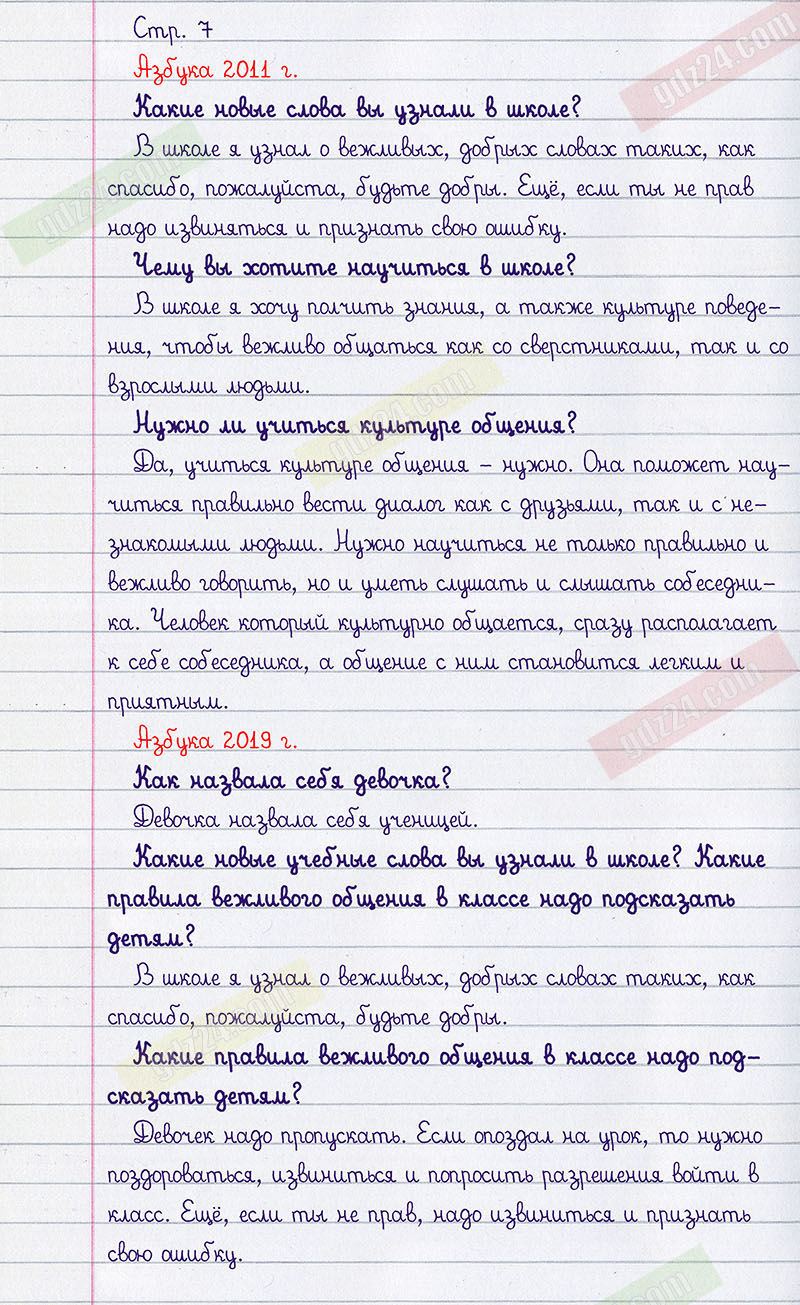 Стр. 7
Азбука 2011 г.
Какие новые слова вы узнали в школе?
В школе я узнал о вежливых, добрых словах таких, как
спасибо, пожалуйста, будьте добры. Ещё, если ты не прав
надо извиняться и признать свою ошибку.
Чему вы хотите научиться в школе?
В школе я хочу полчить знания, а также культуре поведе-
ния, чтобы вежливо общаться как со сверстниками, так и со
взрослыми людьми.
Нужно ли учиться культуре общения?
Да, учиться культуре общения – нужно. Она поможет нау-
читься правильно вести диалог как с друзьями, так и с не-
знакомыми людьми. Нужно научиться не только правильно и
вежливо говорить, но и уметь слушать и слышать собеседни-
ка. Человек который культурно общается, сразу располагает
к себе собеседника, а общение с ним становится легким и
приятным.
Азбука 2019 г.
Как назвала себя девочка?
Девочка назвала себя ученицей.
Какие новые учебные слова вы узнали в школе? Какие
правила вежливого общения в классе надо подсказать
детям?
В школе я узнал о вежливых, добрых словах таких, как
спасибо, пожалуйста, будьте добры.
Какие правила вежливого общения в классе надо под-
сказать детям?
Девочек надо пропускать. Если опоздал на урок, то нужно
поздороваться, извиниться и попросить разрешения войти в
класс. Ещё, если ты не прав, надо извиниться и признать
свою ошибку.
gdz24.com
gdz24.com
gdz24.com
gdz24.com
gdz24.com
gdz24.com